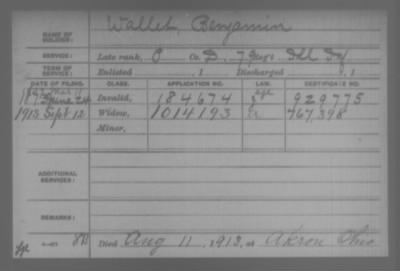 NAME OF SOLDIER: Wallet, Benjamin
SERVICE: Late rank, P Co. D, 79 Reg't Ill Inf
TERM OF SERVICE: Enlisted , 1 Discharged , 1
DATE OF FILING. CLASS. APPLICATION NO. LAW. CERTIFICATE NO.
June 24 Invalid, 184674 929775
1913 Sept 12 Widow, 1014193 767,398
Minor,
ADDITIONAL SERVICES:
REMARKS:
Died Aug 11, 1913, at Akron Ohio